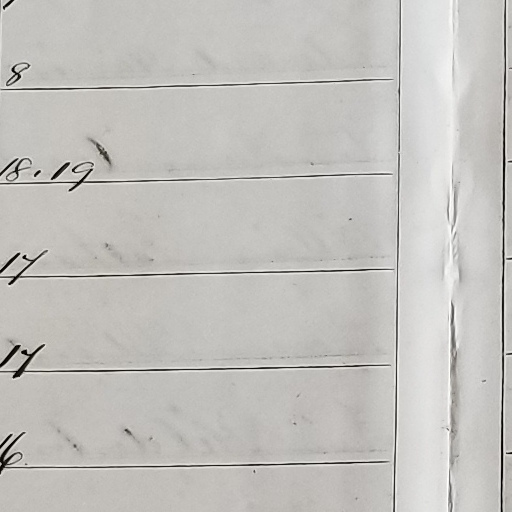 8
18.19
17
17
16